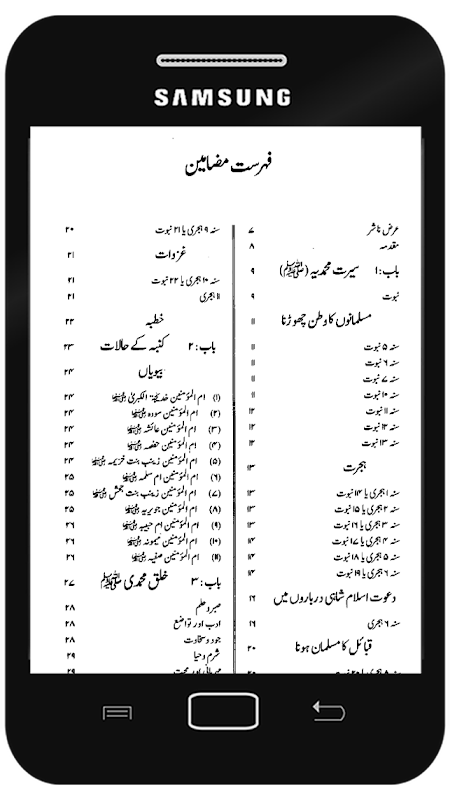 SAMSUNG
فہرست مضامین
عرض ناشر ۷
مقدمہ ۸
باب: ۱ سیرت محمدیہ (ﷺ) ۹
نبوت ۹
مسلمانوں کا وطن چھوڑنا ۱۱
سنہ ۵ نبوت ۱۱
سنہ ۶ نبوت ۱۱
سنہ ۷ نبوت ۱۱
سنہ ۱۰ نبوت ۱۱
سنہ ۱۱ نبوت ۱۲
سنہ ۱۲ نبوت ۱۲
سنہ ۱۳ نبوت ۱۲
ہجرت ۱۳
سنہ ۱ ہجری یا ۱۴ نبوت ۱۳
سنہ ۲ ہجری یا ۱۵ نبوت ۱۳
سنہ ۳ ہجری یا ۱۶ نبوت ۱۳
سنہ ۴ ہجری یا ۱۷ نبوت ۱۴
سنہ ۵ ہجری یا ۱۸ نبوت ۱۴
سنہ ۶ ہجری یا ۱۹ نبوت ۱۴
دعوت اسلام شاہی درباروں میں ۱۶
سنہ ۶ ہجری ۱۶
قبائل کا مسلمان ہونا ۲۰
سنہ ۸ ہجری یا ۲۰ نبوت ۲۰
سنہ ۹ ہجری یا ۲۱ نبوت ۲۰
غزوات ۲۱
سنہ ۱۰ ہجری یا ۲۲ نبوت ۲۱
۱۱ ہجری ۲۱
خطبہ ۲۲
باب: ۲ کنبہ کے حالات ۲۳
بیویاں ۲۴
(۱) ام المؤمنین خدیجۃ الکبریٰ ۲۴
(۲) ام المؤمنین سودہ ۲۴
(۳) ام المؤمنین عائشہ ۲۴
(۴) ام المؤمنین حفصہ ۲۴
(۵) ام المؤمنین زینب بنت خزیمہ ۲۴
(۶) ام المؤمنین ام سلمہ ۲۵
(۷) ام المؤمنین زینب بنت جحش ۲۵
(۸) ام المؤمنین جویریہ ۲۵
(۹) ام المؤمنین ام حبیبہ ۲۶
(۱۰) ام المؤمنین میمونہ ۲۶
(۱۱) ام المؤمنین صفیہ ۲۶
باب: ۳ خلق محمدی ﷺ ۲۷
صبر و حلم ۲۸
ادب اور تواضع ۲۸
جود و سخاوت ۲۸
شرم و حیا ۲۹
مہربانی اور محبت ۲۹